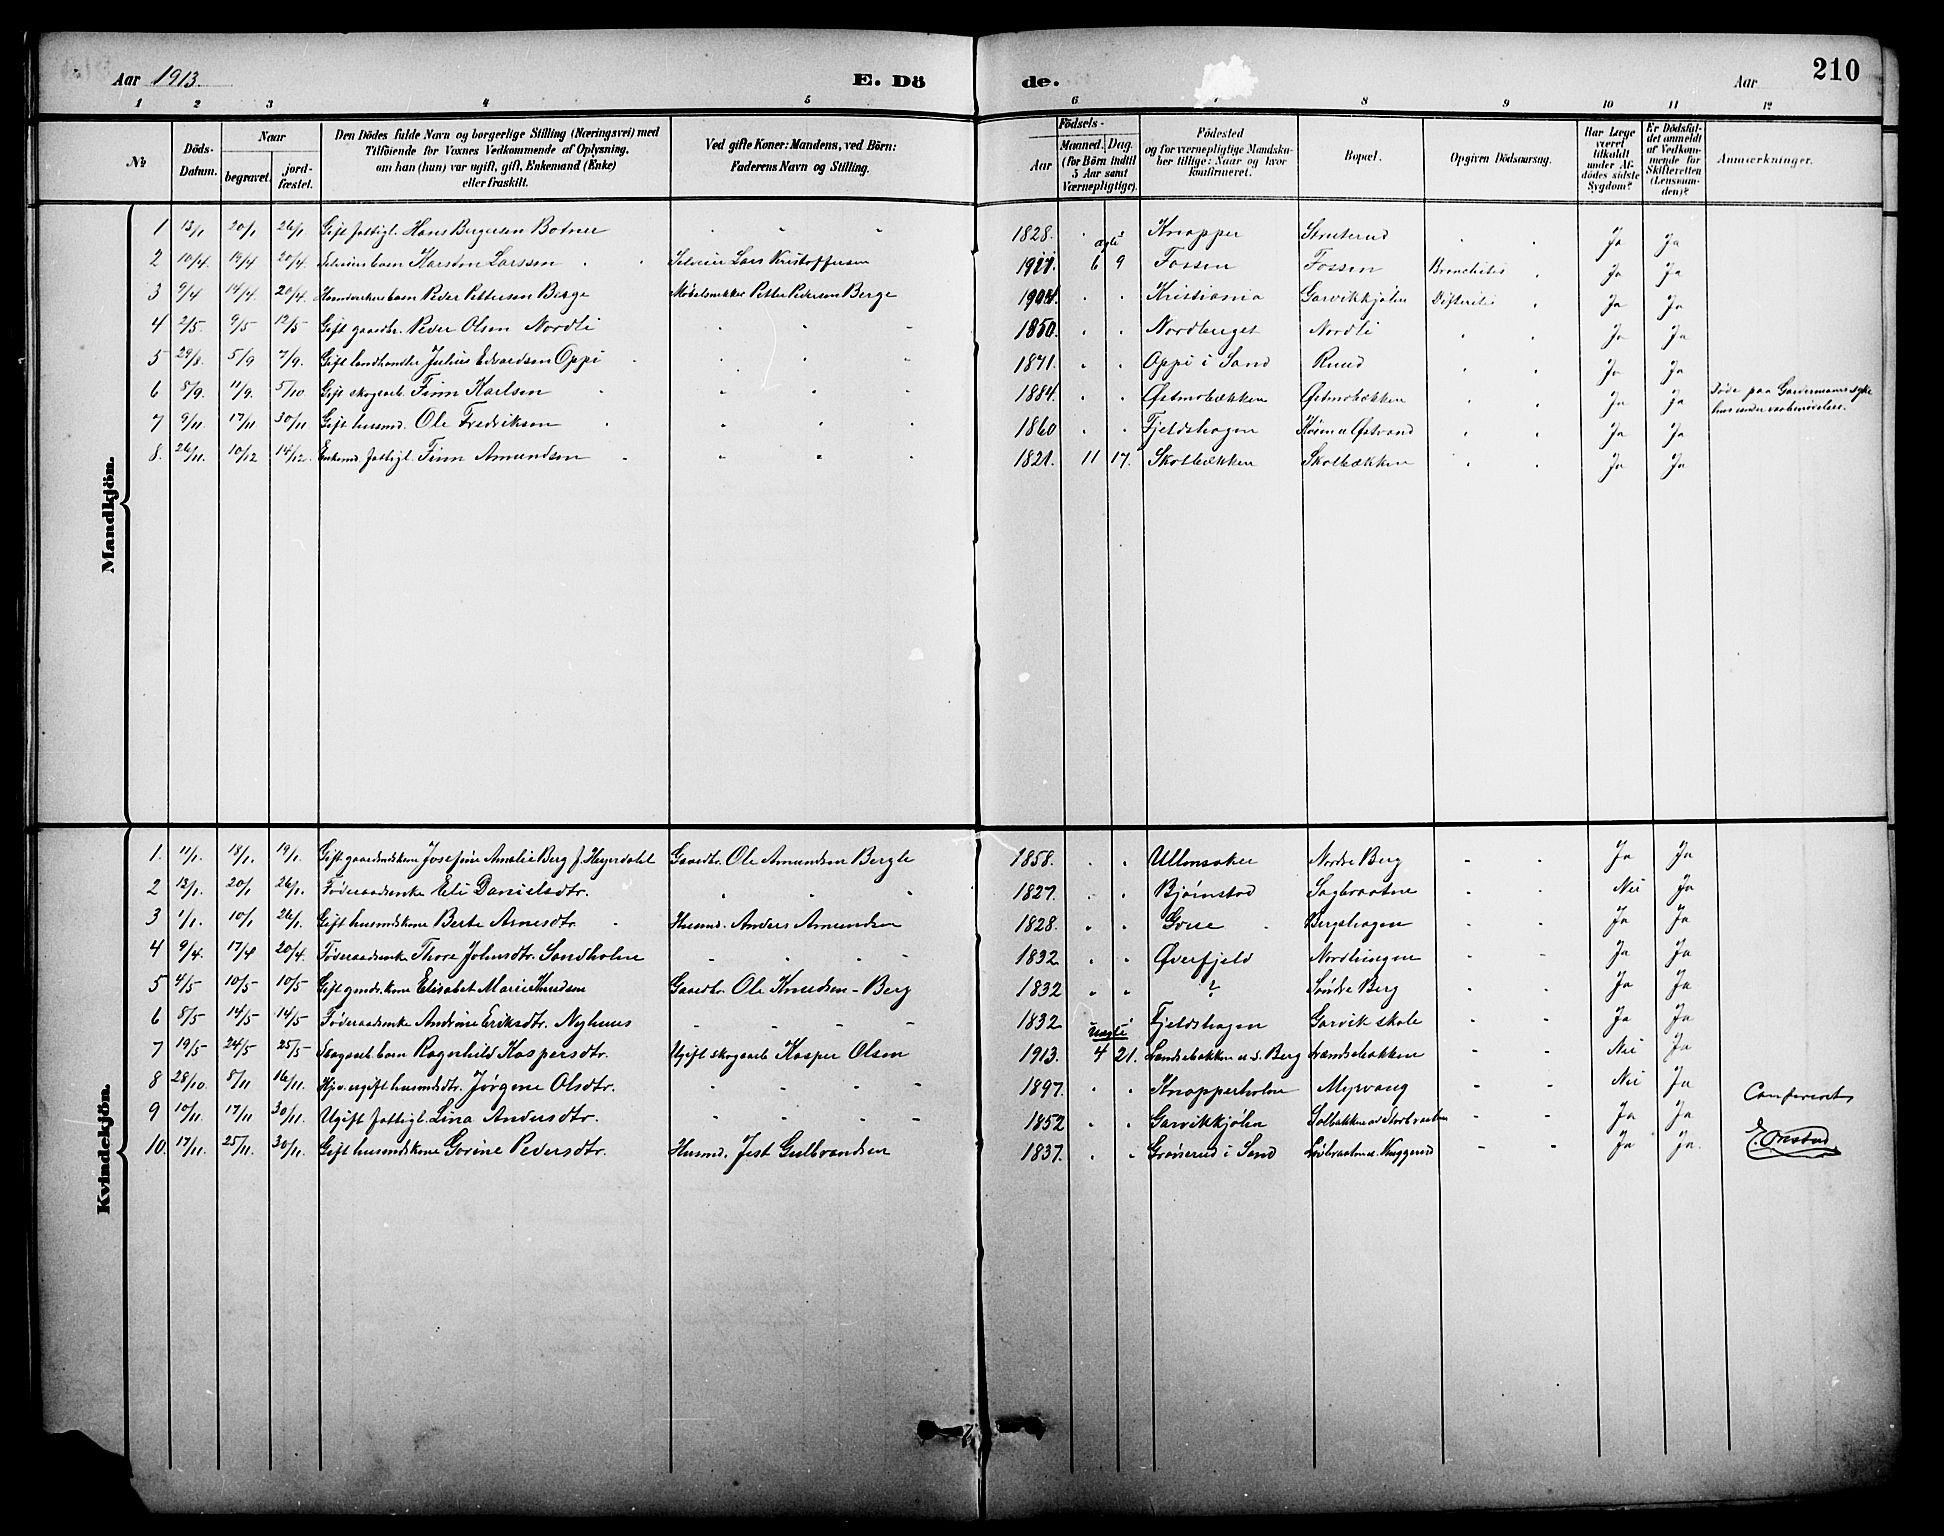 Aar 1913. E. Dö de. Aar 210
1 2 3 4 5 6 7 8 9 10 11 12
№ Döds-Datum. Naar begravet. jordfæstet. Den Dödes fulde Navn og borgerlige Stilling (Næringsvei) med Tilföiende for Voxnes Vedkommende af Oplysning, om han (hun) var ugift, gift, Enkemand (Enke) eller fraskilt. Ved gifte Koner: Mandens, ved Börn: Faderens Navn og Stilling. Födsels- Aar Maaned. Dag. (for Börn indtil 5 Aar samt Værnepligtige). Födested og for værnepligtige Mandskaber tillige: Naar og hvor konfirmeret. Bopæl. Opgiven Dödsaarsag. Har Læge været tilkaldt under Afdödes sidste Sygdom? Er Dödsfaldet anmeldt af Vedkommende for Skifteretten (Lensmanden)? Anmærkninger.
Mandkjön.
1 13/1 20/1 26/1 Gift fattigl. Hans Bergersen Botner " " " 1828. " " Knapper Struterud " " Ja Ja
2 10/4 19/4 20/4 Karsten Larssen " " Lars Kristoffersen 1911 ægte 6 9 Fossen Fossen Bronchitis " Ja Ja
3 9/4 14/4 20/4 Peder Pettersen Berge Møbelsnekker Petter Pedersen Berge 1904 " " Kristiania Garvikkjølen Difteritis " Ja Ja
4 2/5 9/5 12/5 Gift gaardbr. Peder Olsen Nordli " " " 1850. " " Nordberget Nordli " " Ja Ja
5 29/8 5/9 7/9 Gift landhandler Julius Edvardsen Oppi " " " " 1871. " " Oppi i Sand Ruud " " Ja Ja
6 8/9 11/9 5/10 Gift skogsarb. Finn Karlsen " " " " 1884 " " Østmobækken Østmobækken Ja Ja Døde paa Gardermoens syke
hus under vaabenøvelse.
7 9/11 17/11 30/11 Gift husmd. Ole Fredriksen " " " " 1860 " " Fjeldshagen Østvand " " Ja Ja
8. 26/11. 10/12 14/12 Enkemd. fattigl. Finn Amundsen " " " " 1821. 11 17. Skolbækken Skolbækken " " Ja Ja
Kvindekjön.
1. 11/1. 18/1. 19/1 Gift gaardmdskone Josefine Amalie Berg f. Heyerdahl Gaardbr. Ole Amundsen Bergle 1858. " " Ullensaker Nordre Berg " " Ja Ja
2 12/1. 20/1 26/1. Føderaadsenke Eli Danielsdtr. " " " 1827. " " Bjørnstad Sagbraatne " " Nei Ja
3 1/1. 10/1 26/1. Gift husmdskone Berte Arnesdtr " Husmd. Anders Amundsen 1828. " " " Bergshagen " " Ja Ja
4 9/4. 17/4 20/4. Føderaadsenke Thore Johnsdtr. Sandholen " " " " 1832 " " Øverfjeld Nordhungen " " Ja Ja
5 4/5 10/5 10/5 Gift gmds.kone Elisabet Marie Knudsen Gaardbr. Ole Knudsen - Berg 1832 " " ? Søndre Berg " " Ja Ja
6 8/5 14/5 14/5 Føderaadsenke Andrine Eriksdtr. Nyhuus " " " " 1832 " " Fjeldshagen Garvik skole " " Ja Ja
7 19/5 24/5 25/5 Skogsarb. barn Ragnhild Kaspersdtr. Ugift skogsarb. Kasper Olsen 1913. uægte 4 21. Landsebakken u. s. Berg Landsebakken " " Nei Ja
8 28/10. 8/11 16/11 ugift husmdsdtr. Jørgene Olsdtr. " " " 1897. " " Knapperholen Myrvang " " Nei Ja Confereret
9 10/11. 17/11 30/11. Ugift fattigl. Lina Andersdtr. " " " " 1852 " " Garvikkjølen Solbakken " " Ja Ja
10. 17/11. 25/11. 30/11. Gift husmdskone Gorine Pedersdtr. Husmd. Jest Gulbrandsen 1837. " " Grøiserud i Sand " " Ja Ja.